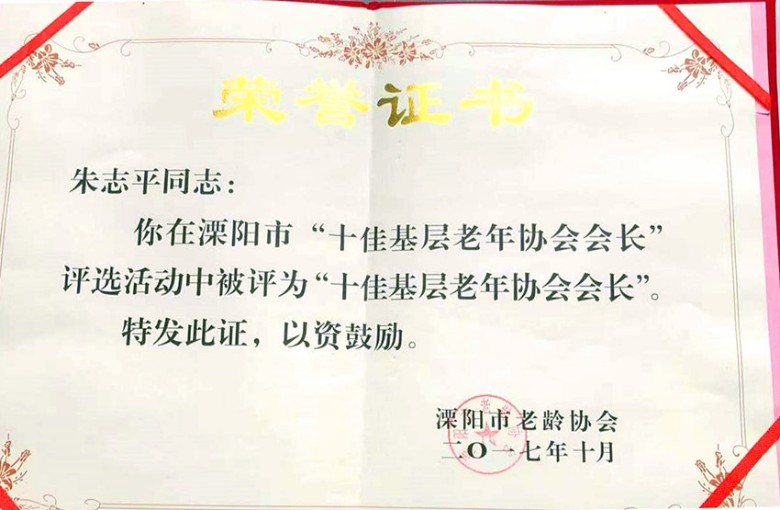 荣誉证书
朱志平同志：
你在溧阳市“十佳基层老年协会会长”
评选活动中被评为“十佳基层老年协会会长”。
特发此证，以资鼓励。
溧阳市老龄协会
二〇一七年十月